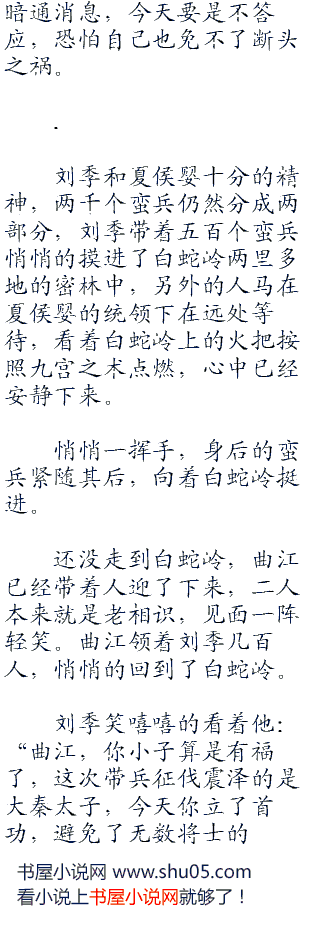 暗通消息，今天要是不答
应，恐怕自己也免不了断头
之祸。
.
刘季和夏侯婴十分的精
神，两千个蛮兵仍然分成两
部分，刘季带着五百个蛮兵
悄悄的摸进了白蛇岭两里多
地的密林中，另外的人马在
夏侯婴的统领下在远处等
待，看着白蛇岭上的火把按
照九宫之术点燃，心中已经
安静下来。
悄悄一挥手，身后的蛮
兵紧随其后，向着白蛇岭挺
进。
还没走到白蛇岭，曲江
已经带着人迎了下来，二人
本来就是老相识，见面一阵
轻笑。曲江领着刘季几百
人，悄悄的回到了白蛇岭。
刘季笑嘻嘻的看着他：
“曲江，你小子算是有福
了，这次带兵征伐震泽的是
大秦太子，今天你立了首
功，避免了无数将士的
书屋小说网 www.shu05.com
看小说上书屋小说网就够了！